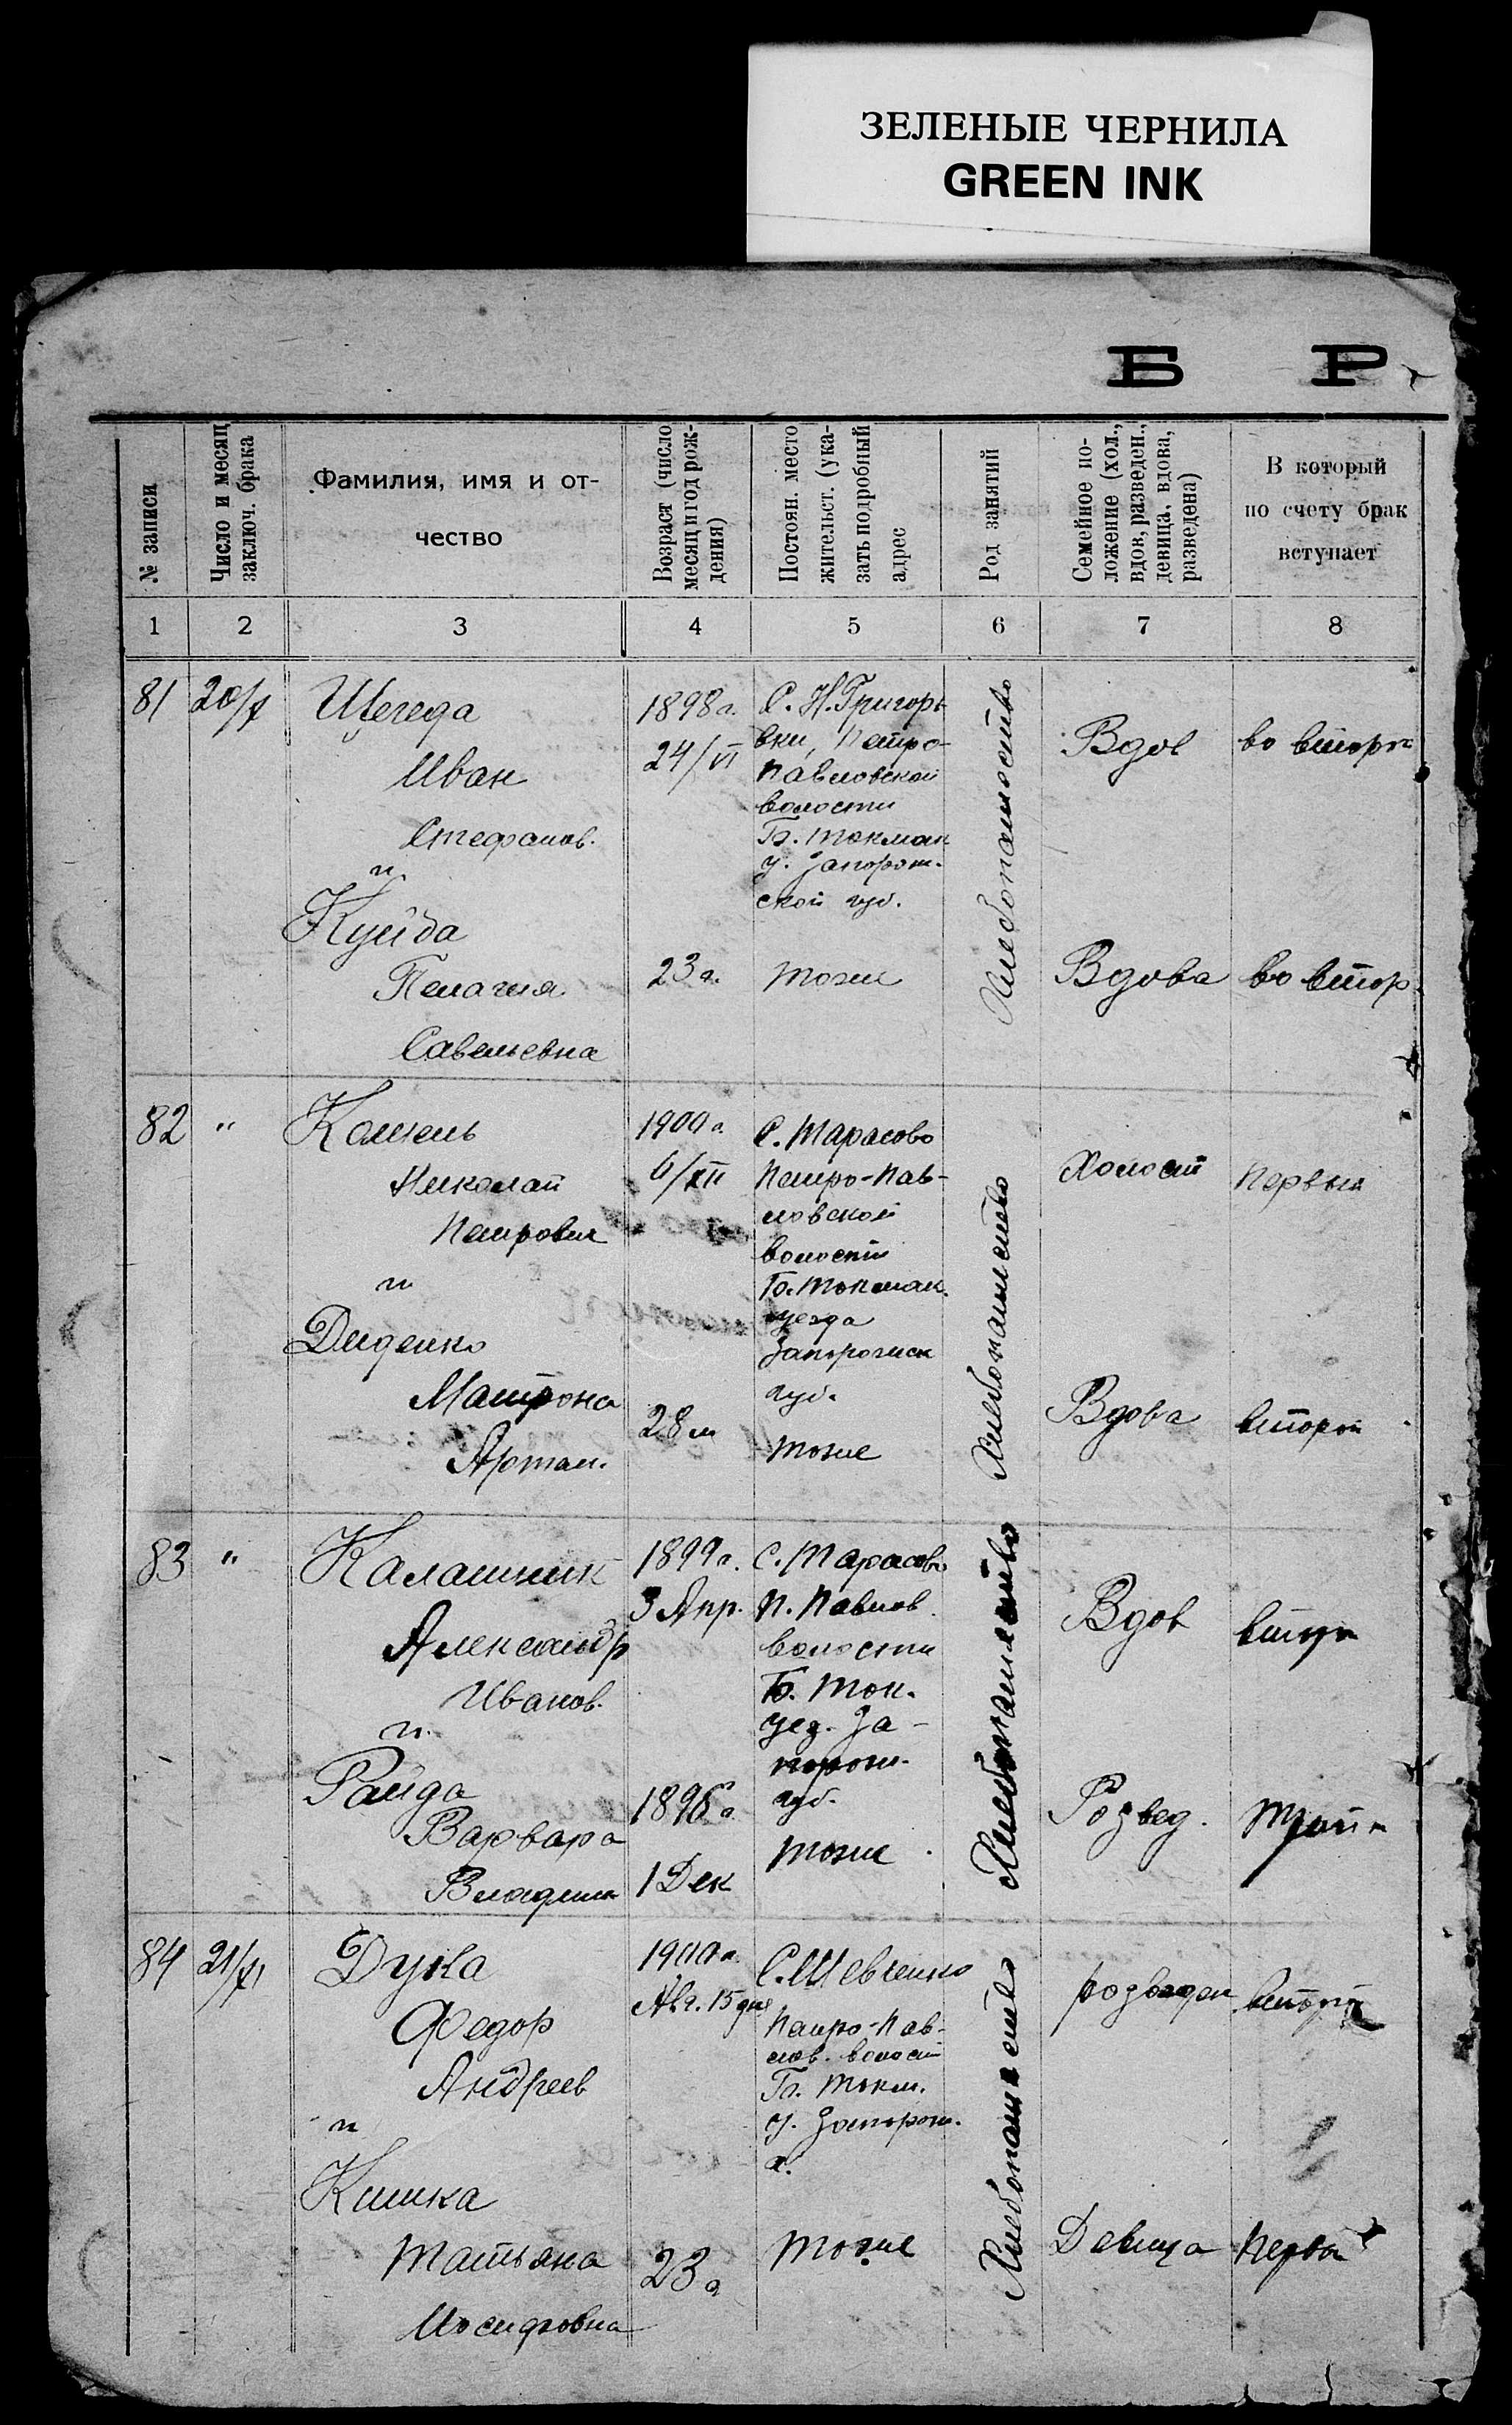 ЗЕЛЕНЫЕ ЧЕРНИЛА
GREEN INK
Б Р
№ записи
Число и месяц
заключ. брака
Фамилия, имя и от-
чество
Возраст (число
месяц и год рож-
дения)
Постоян. место
жительст. (ука-
зать подробный
адрес
Род занятий
Семейное по-
ложение (хол.,
вдов, разведен.,
девица, вдова,
разведена)
В который
по счету брак
вступает
1 2 3 4 5 6 7 8
81
Щегеда
Иван
Стефанов.
и
Куйда
Пелагия
Савельевна
1898 г.
24/VI
23 г.
С. Н. Григорь
вки, Петро-
Павловской
волости
Б. Токмак
у. Запорож.
ской губ.
тоже
Хлебопашество
Вдов
Вдова
во вторы
во втор.
82 "
Николай
Петрович
и
Диденко
Матрона
Артам.
1900 г.
6/XII
28 л
С. Тарасово
Петро-Пав-
ловской
волости
Б. Токмак.
уезда
Запорожск
губ.
тоже
Хлебопашество
Холост
Вдова
Первый
второй
83 "
Калашник
Александр
Иванов.
и
Райда
Варвара
1899 г.
3 Апр.
1 Дек
С. Тарасово
П. Павлов.
волости
Б. Ток.
уез. За-
порож.
губ.
тоже
Хлебопашество
Вдов
Розвед.
84
Дука
Федор
Андреев
и
Кишка
Татьяна
Иосифовна
1900 г.
Авг. 15 дня
23 г
С. Шевченко
Петро-Пав-
лов. волост
Б. Токм.
у. Запорож.
г.
тоже
Хлебопашество
розведен
Девица